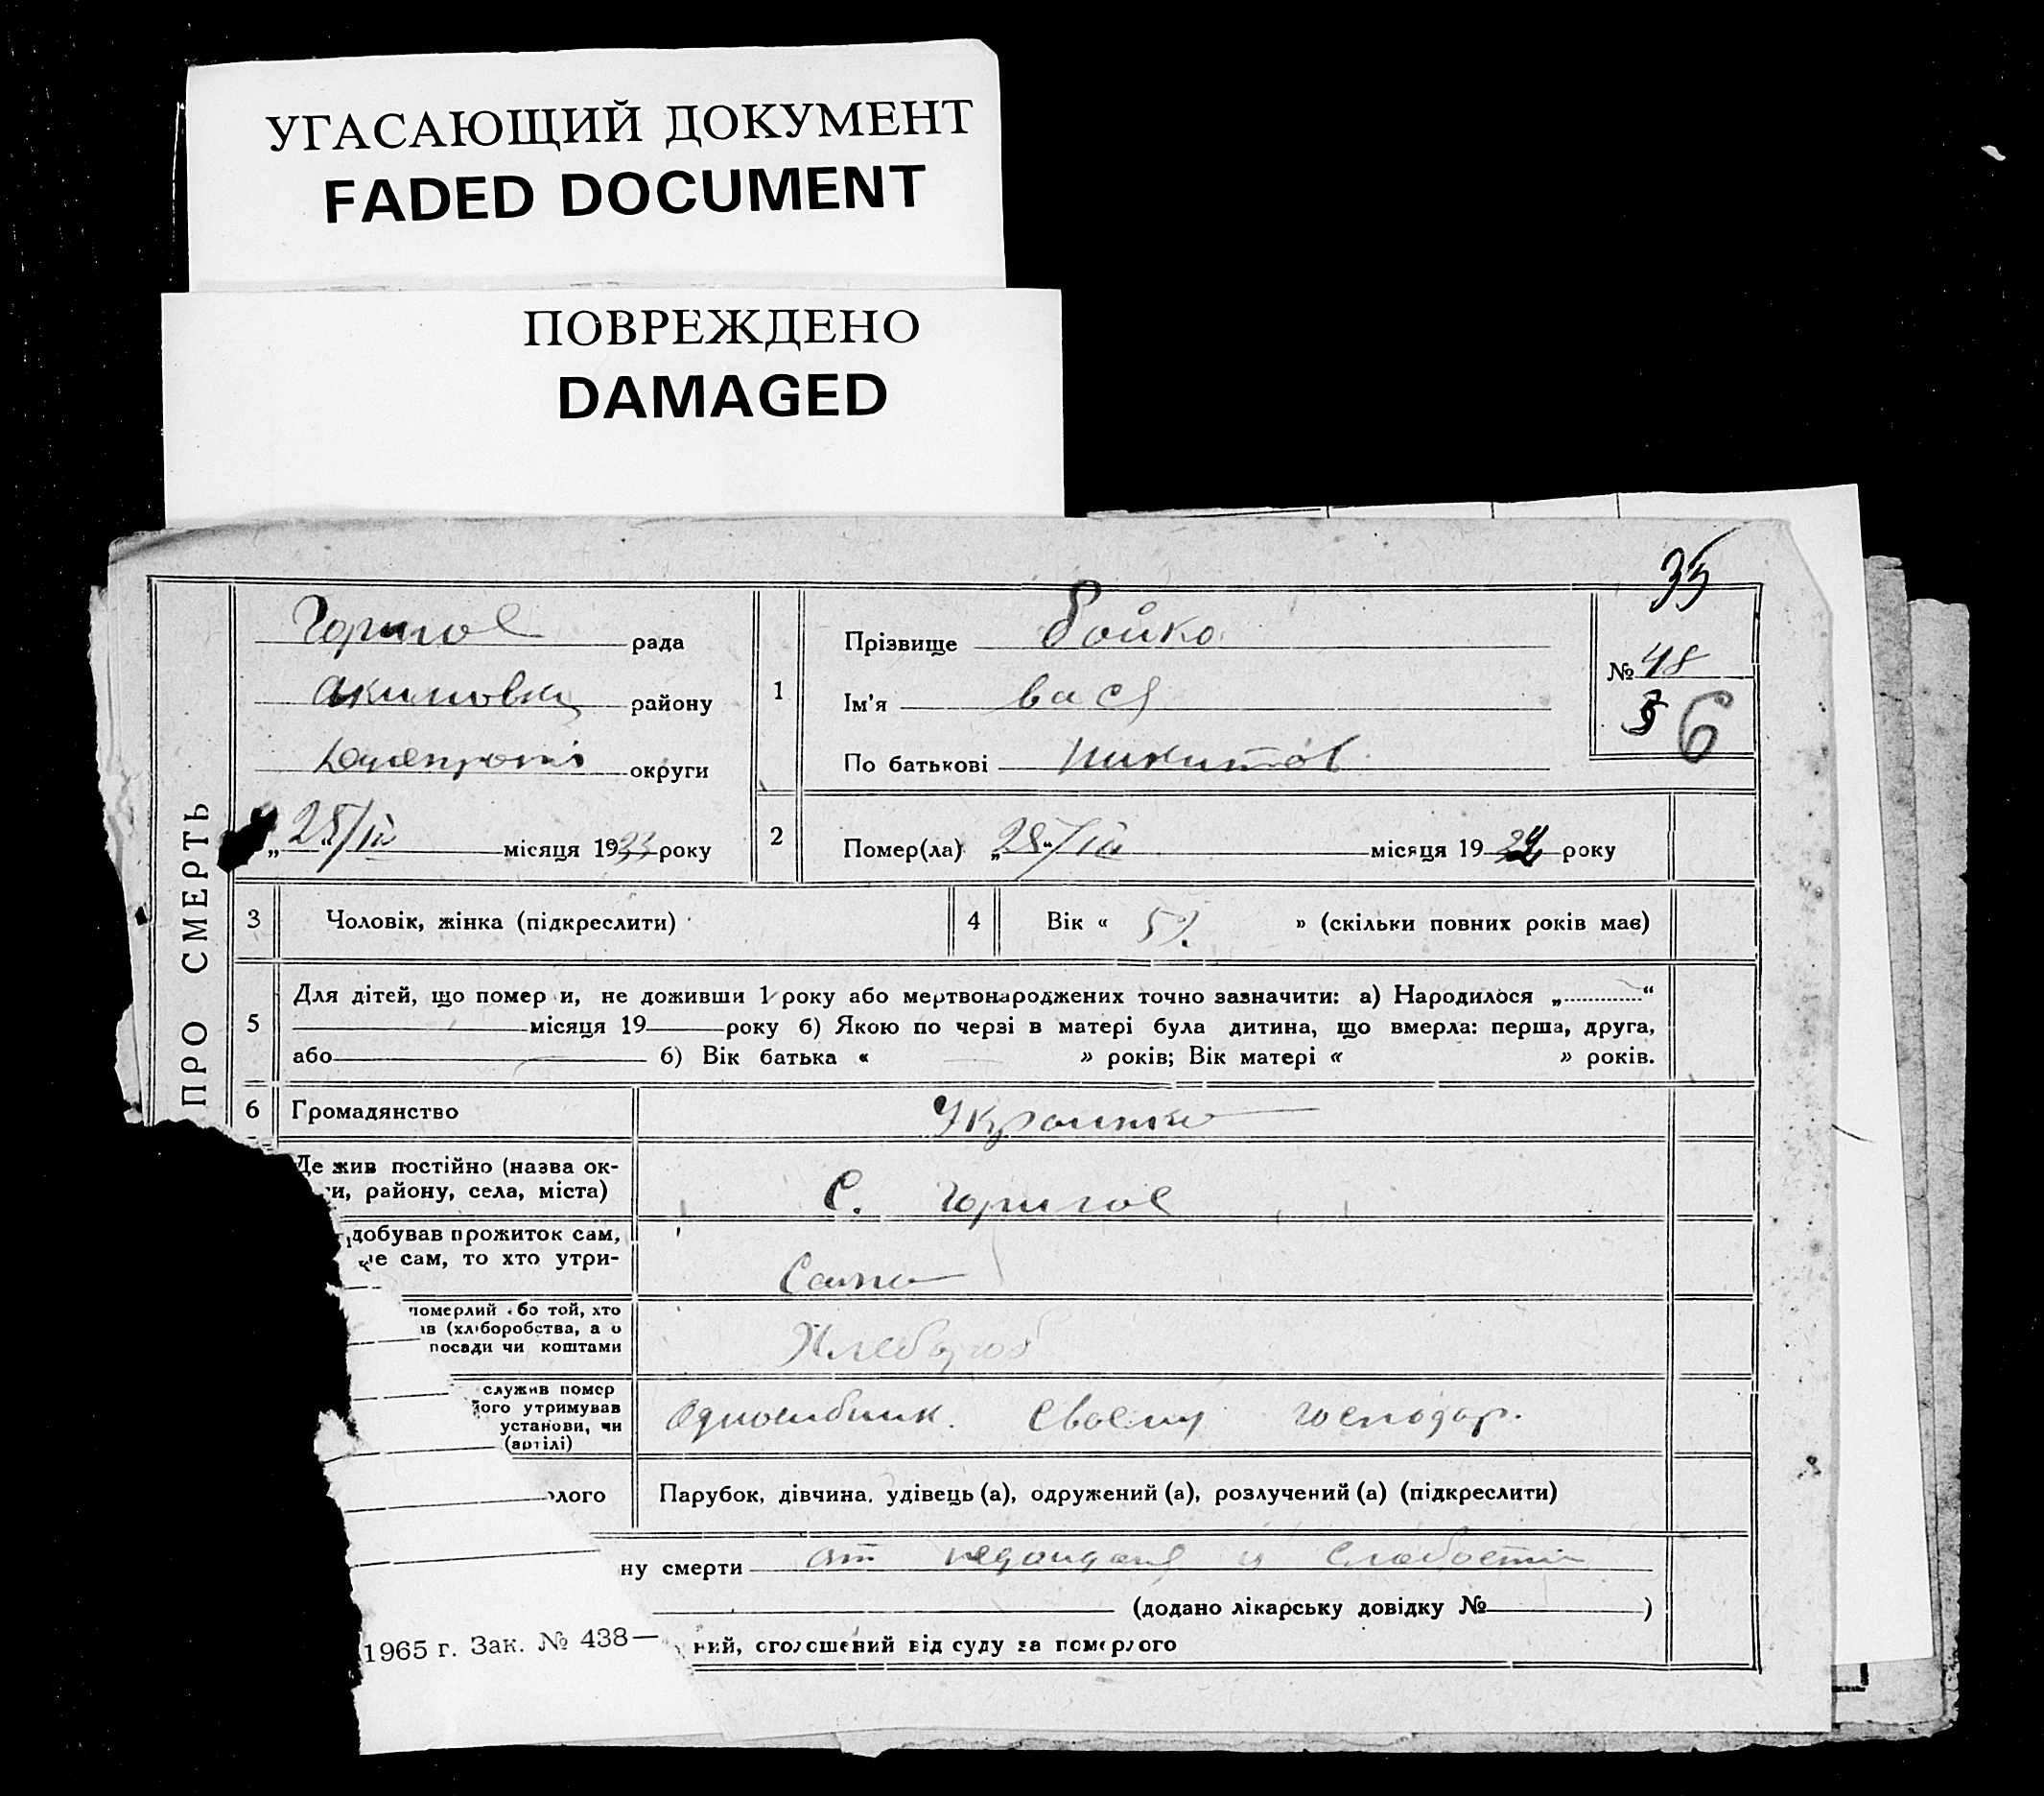 УГАСАЮЩИЙ ДОКУМЕНТ
FADED DOCUMENT
ПОВРЕЖДЕНО
DAMAGED
35
ПРО СМЕРТЬ
рада
району
округи
„28/III місяця 1933 року
1
Прізвище Бойко
Ім'я Вася
По батькові Никитов
№ 48
6
2
Помер(ла) „28“/III місяця 19 року
3 Чоловік, жінка (підкреслити)
4 Вік « » (скільки повних років має)
5 Для дітей, що помер и, не доживши 1 року або мертвонароджених точно зазначити: а) Народилося „.............“
місяця 19 року б) Якою по черзі в матері була дитина, що вмерла: перша, друга,
або б) Вік батька « » років; Вік матері « » років.
6 Громадянство
Де жив постійно (назва ок-
ги, району, села, міста) С.
добував прожиток сам,
не сам, то хто утри-
Само
померлий або той, хто
ів (хліборобства, а о
посади чи коштами
Хлебороб
служив помер
його утримував
установи, чи
(артілі)
своему господар.
лого Парубок, дівчина, удівець (а), одружений (а), розлучений (а) (підкреслити)
ну смерти от недоидания и слабости
(додано лікарську довідку № )
ний, оголошений від суду за померлого
1965 г. Зак. № 438—